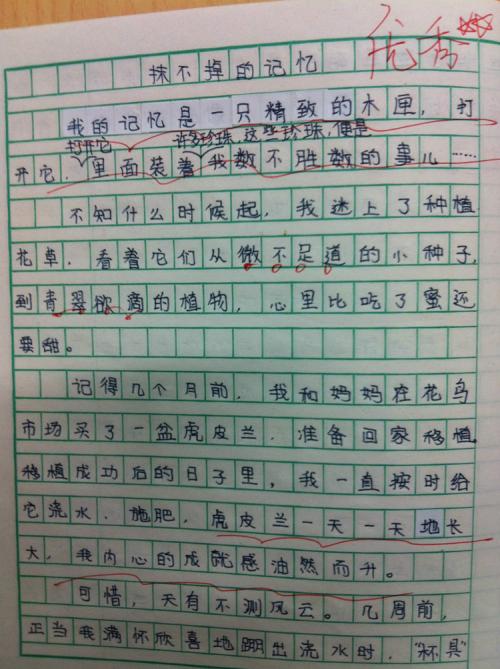 优秀
抹不掉的记忆
我的记忆是一只精致的木匣，打
打开它 许多珍珠，这些珍珠，便是
开它，里面装着我数不胜数的事儿……
不知什么时候起，我迷上了种植
花草，看着它们从微不足道的小种子，
到青翠欲滴的植物，心里比吃了蜜还
要甜。
记得几个月前，我和妈妈在花鸟
市场买了一盆虎皮兰，准备回家移植
移植成功后的日子里，我一直按时给
它浇水、施肥，虎皮兰一天一天地长
大，我内心的成就感油然而升。
可惜，天有不测风云。几周前，
正当我满怀欣喜地踱出浇水时，“杯具”